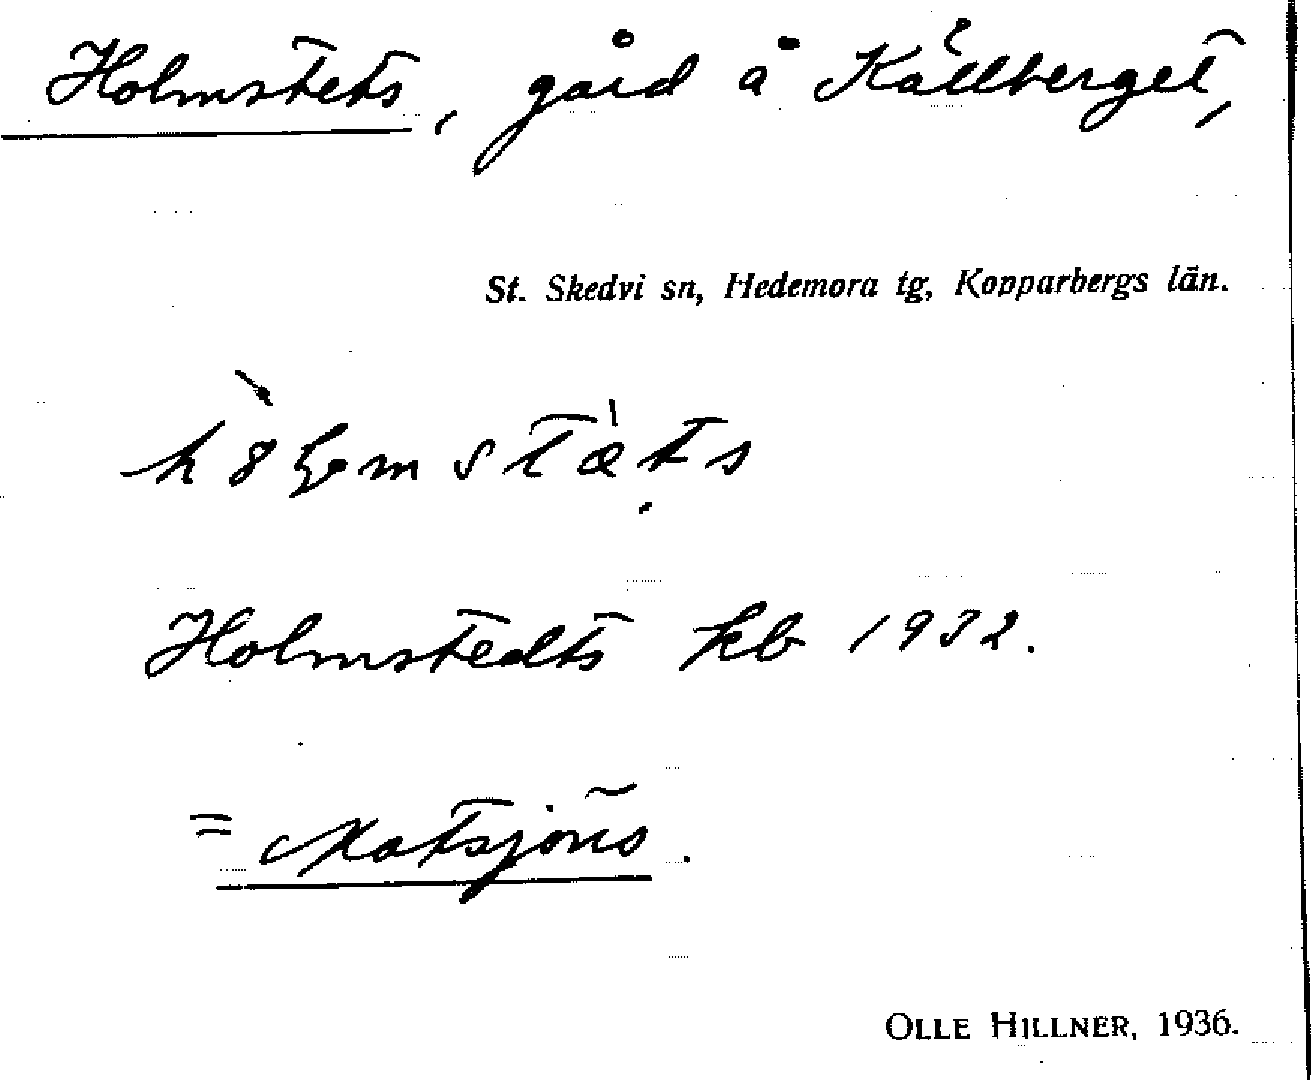 Holmstets, gård å Källberget,
St. Skedvi sn, Hedemora tg, Kopparbergs län.
Holmstedts kb 1932.
= Matsjöns.
OLLE HILLNER, 1936.